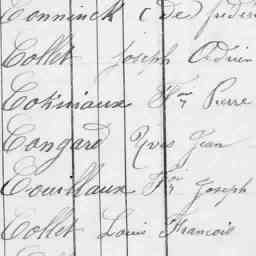 Conninck C de frédéri
Collet Joseph Adrien
Cotiniaux Fs Pierre
Congard Yves Jean
Couillaux Fs Joseph
Collet Louis François